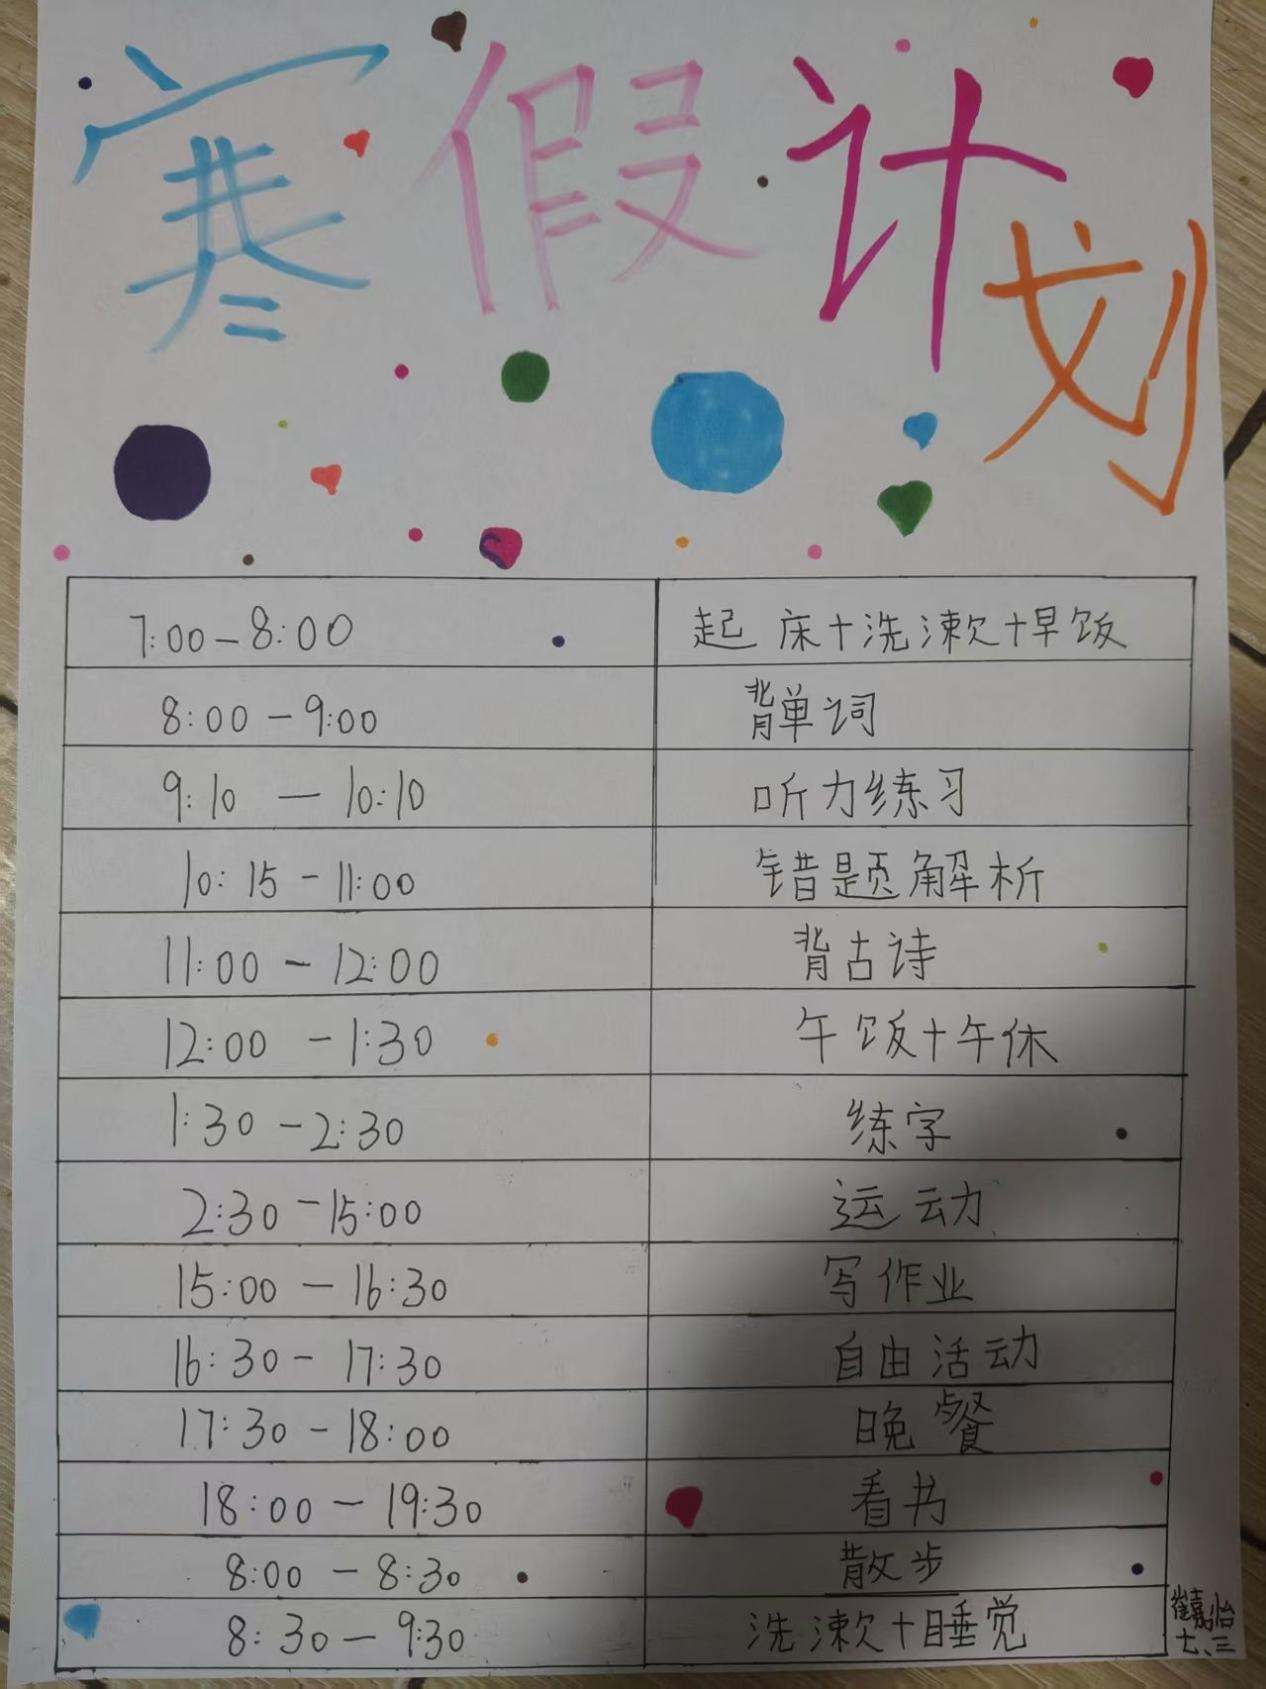 寒假计划
7:00-8:00 起床+洗漱+早饭
8:00-9:00 背单词
9:10-10:10 听力练习
10:15-11:00 错题解析
11:00-12:00 背古诗
12:00-1:30 午饭+午休
1:30-2:30 练字
2:30-15:00 运动
15:00-16:30 写作业
16:30-17:30 自由活动
17:30-18:00 晚餐
18:00-19:30 看书
8:00-8:30 散步
8:30-9:30 洗漱+睡觉
崔嘉怡
七、三